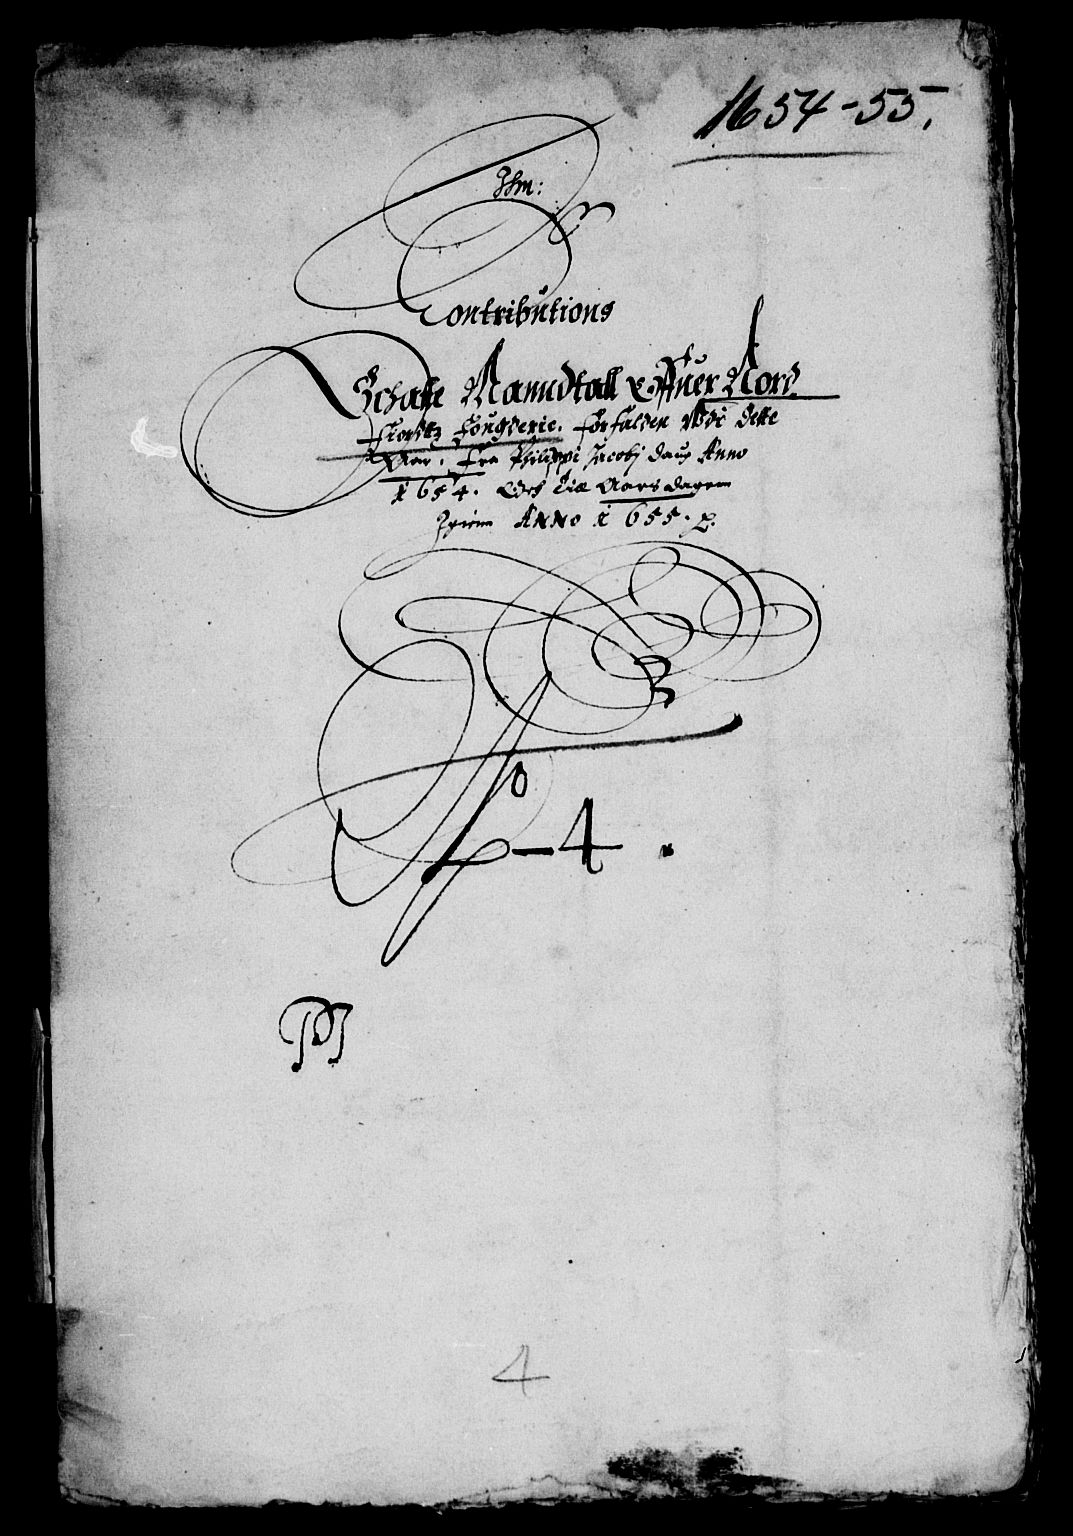 1654-55.
Ihm:
Contributions
Schatte Manndtall Offuer Nord
fiordtz Fougderie. forfalden Udi dette
Aar. Fra Philippi Jacobj daug Anno
1654. Och Till Aars dagenn
Igienn Anno 1655. p.
No-4.
4